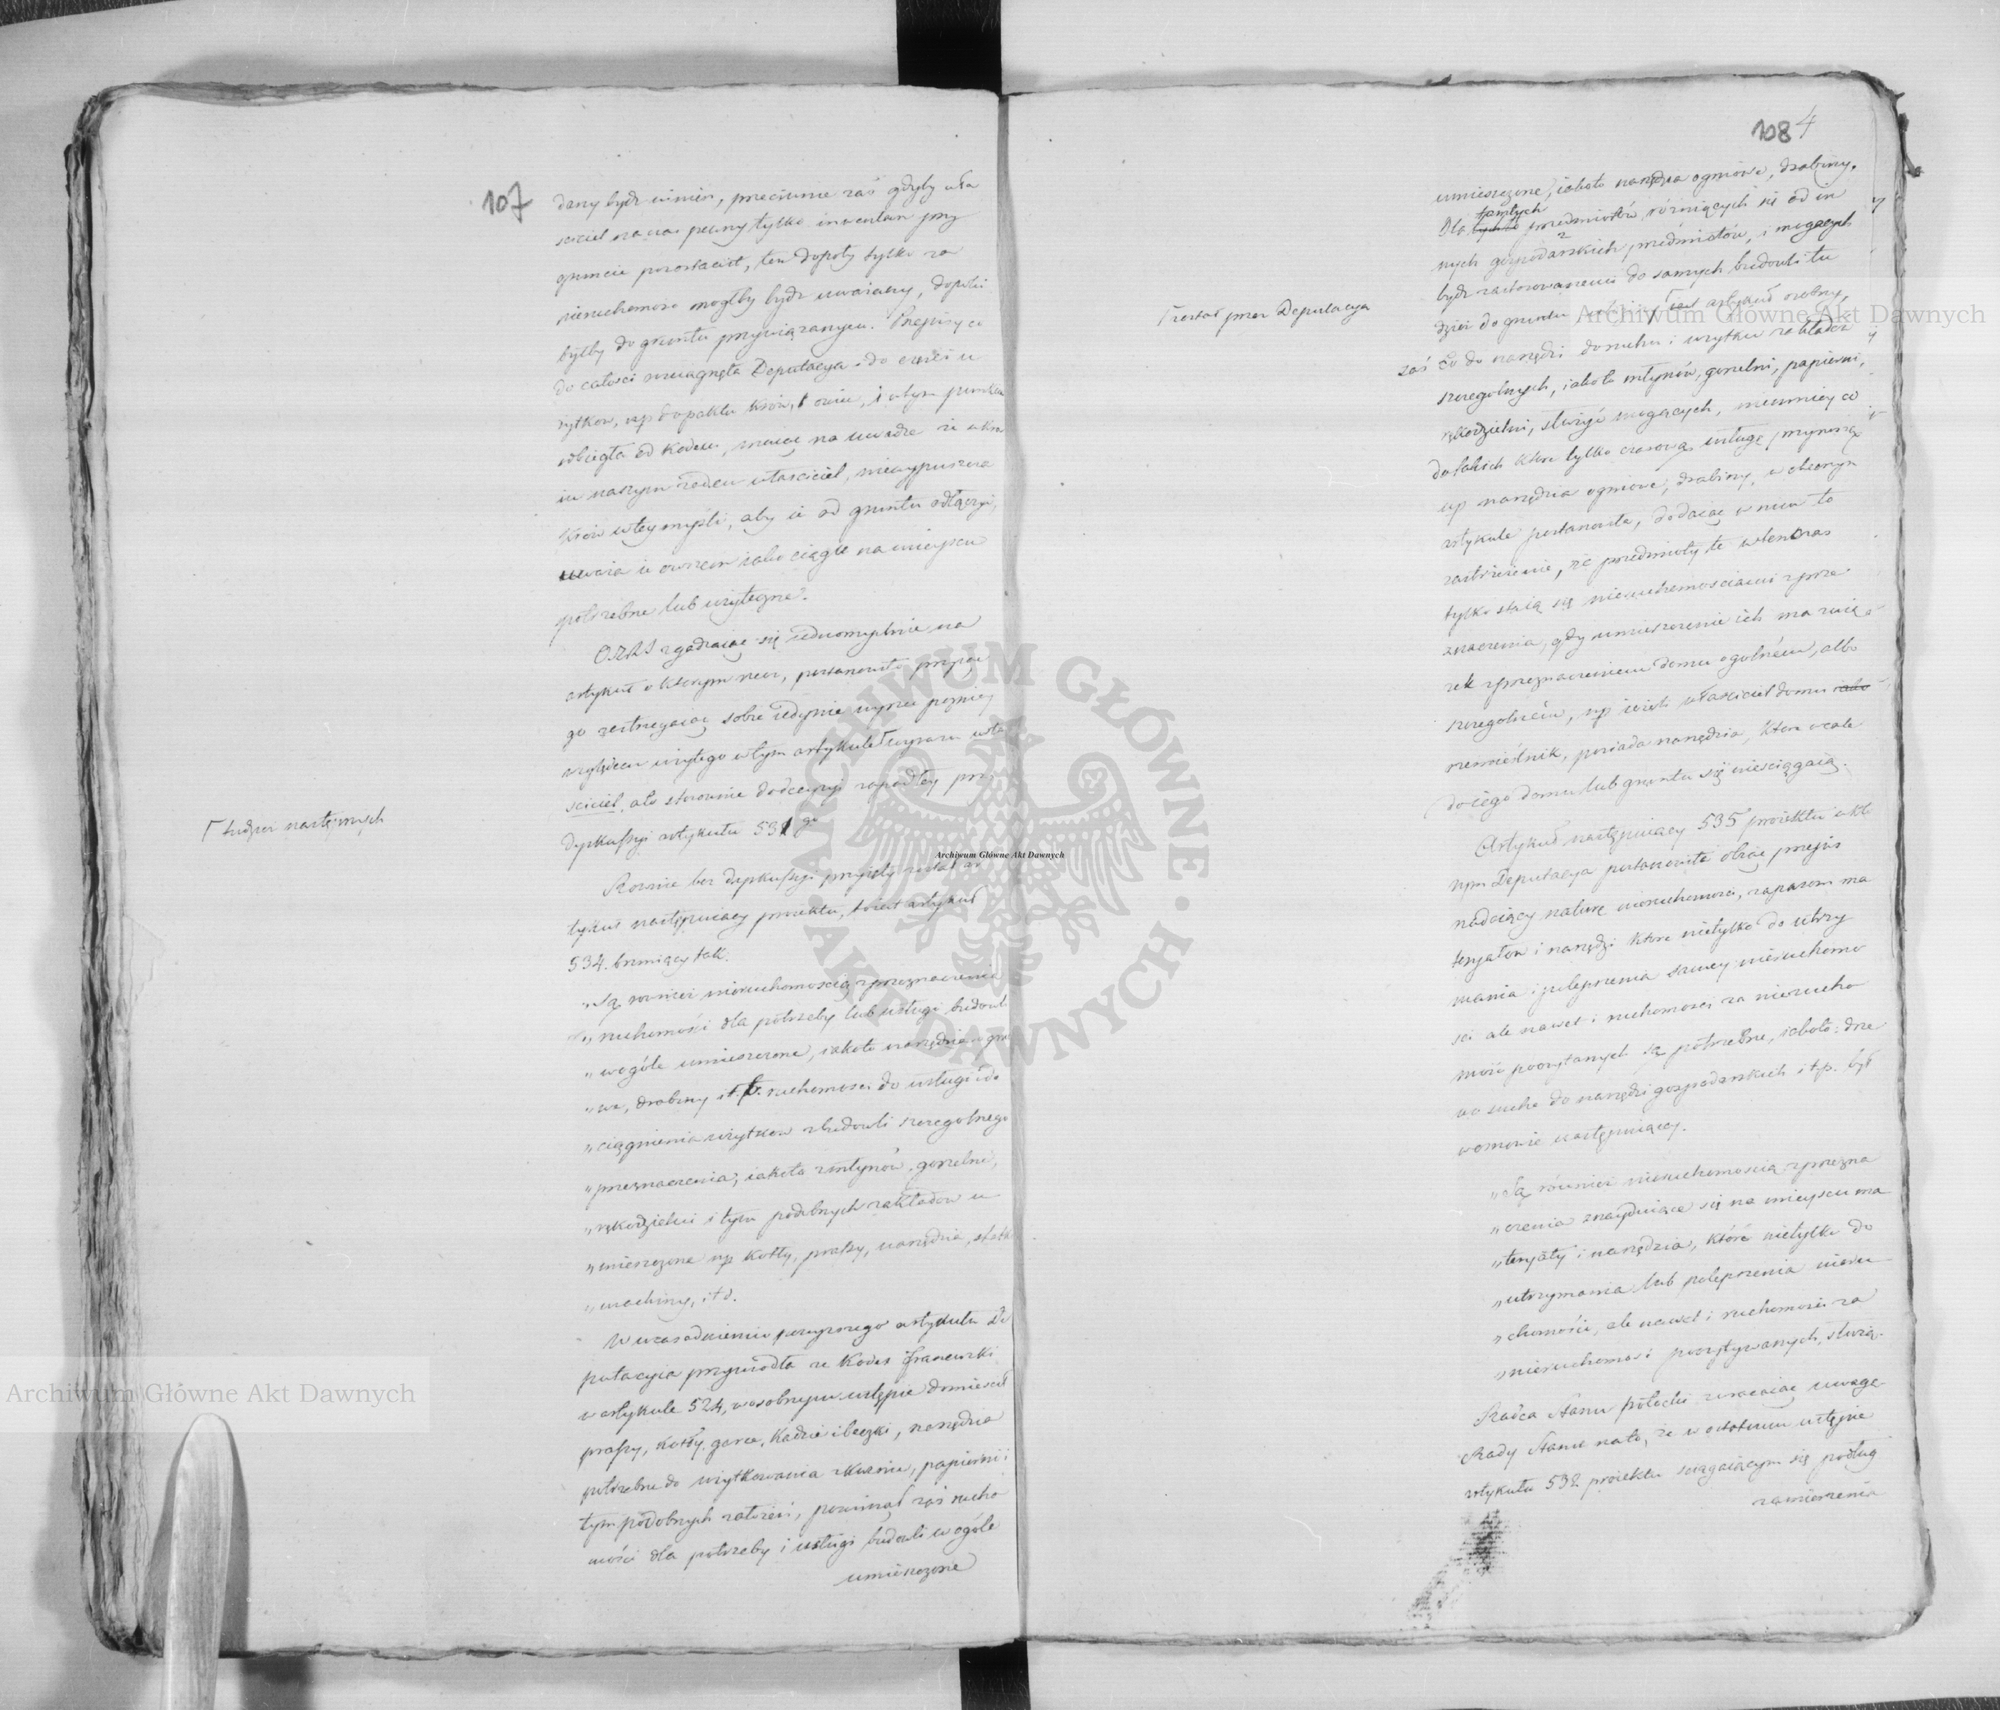 107
dany bydź winien, przeciwnie zaś gdyby wła
sciciel na czas pewny tylko inwentarz przy
gruncie pozostawił, ten dopoty tylko za
nieruchomość mogłby bydź uważany, dopoki
byłby do gruntu przywiązanym. Przepisy co
do całości nienagnęła Deputacya do części u
żytków, np do paktu krów, i owiec, i w tym punkcie
odbiegła od Kodexu, maiąc na uwadze że w kra
iu naszym żaden właściciel, niewypuszcza
krów w tey myśli, aby ie od gruntu odłączyć,
uważa ie owszem iako ciągle na mieyscu
potrzebne lub użyteczne.
ORAS zgadzaiąc się iednomyślnie na
artykuł o ktorym rzecz, postanowiła przyiąć
go zastrzegaiąc sobie iedynie wyraz poźniey
względem użytego w tym artykule wyrazu wła
sciciel, ato stosownie do decyzyi zapadłey przy
dyskussyi artykułu 531go
Rownie bez dyskussyi przyięty został ar
tykuł następuiący proiektu, to iest artykuł
534. brzmiący tak.
Γ tudzież następnych
„Są również nieruchomością z przeznaczenia
„ruchomości dla potrzeby lub usługi budowli
„w ogóle umieszczone, iakoto narzędzia ognio
„we, drabiny i t. p. ruchomości do usługi i do
„ciągnienia użytków z budowli szczególnego
„przeznaczenia, iakoto z młynów, gorzelni,
„rękodzielni i tym podobnych zakładów u
„mieszczone np kotły, prassy, narzędzia, statki
„machiny, itd.
W uzasadnieniu powyższego artykułu De
putacyia przywiodła że Kodex francuzki
w artykule 524, w osobnym ustępie domieścił
prassy, kotły, garce, kadzie i beczki, narzędzia
potrzebne do użytkowania z kuźnic, papierni i
tym podobnych założeń, pominął zaś rucho
mości dla potrzeby i usługi budowli w ogóle
umieszczone
108 4
umieszczone, iakoto narzędzia ogniowe, drabiny.
Dla tamtych przedmiotów, różniących się od in
nych gospodarskich przedmiotów, i mogących
bydź zastosowanemi do samych budowli tu
dzież do gruntu Γ iest artykuł osobny,
Γ został przez Deputacyą
zaś Co do narzędzi do ruchu i użytku zakładów
szczególnych, iakoto młynów, gorzelni, papierni,
rękodzielni, służyć mogących, niemniey co
do takich które tylko czasową usługę przynoszą
np narzędzia ogniowe, drabiny, w obecnym
artykule postanowiła, dodaiąc w nim to
zastrzeżenie, że przedmioty te wtenczas
tylko staią się nieruchomościami z prze
znaczenia, gdy umieszczenie ich ma zwią
zek z przeznaczeniem domu ogólnem, albo
szczególnem, np ieżeli właściciel domu iako
rzemieślnik, posiada narzędzia, które wcale
do iego domu lub gruntu się nieściągaią.
Artykuł następuiący 535 proiektu w któ
rym Deputacya postanowiła obiąć przepis
nadaiący naturę nieruchomości, zapasom ma
teryałow i narzędzi które nietylko do utrzy
mania i polepszenia samey nieruchomo
ści ale nawet i ruchomości za nierucho
mość poczytanych są potrzebne, iakoto: drze
wo suche do narzędzi gospodarskich i t.p. był
w osnowie następuiącey.
„Są również nieruchomością z przezna
„czenia znayduiące się na mieyscu ma
„teryały i narzędzia, które nietylko do
„utrzymania lub polepszenia nieru
„chomości, ale nawet i ruchomości za
„nieruchomość poczytywanych, służą.
Radca Stanu Potocki zwracaiąc uwagę
Rady Stanu na to, że w ostatnim ustępie
artykułu 532 proiektu ściągaiącym się podług
zamierzenia
Archiwum Główne Akt Dawnych
Archiwum Główne Akt Dawnych
Archiwum Główne Akt Dawnych
ARCHIWUM GŁÓWNE · AKT DAWNYCH ·